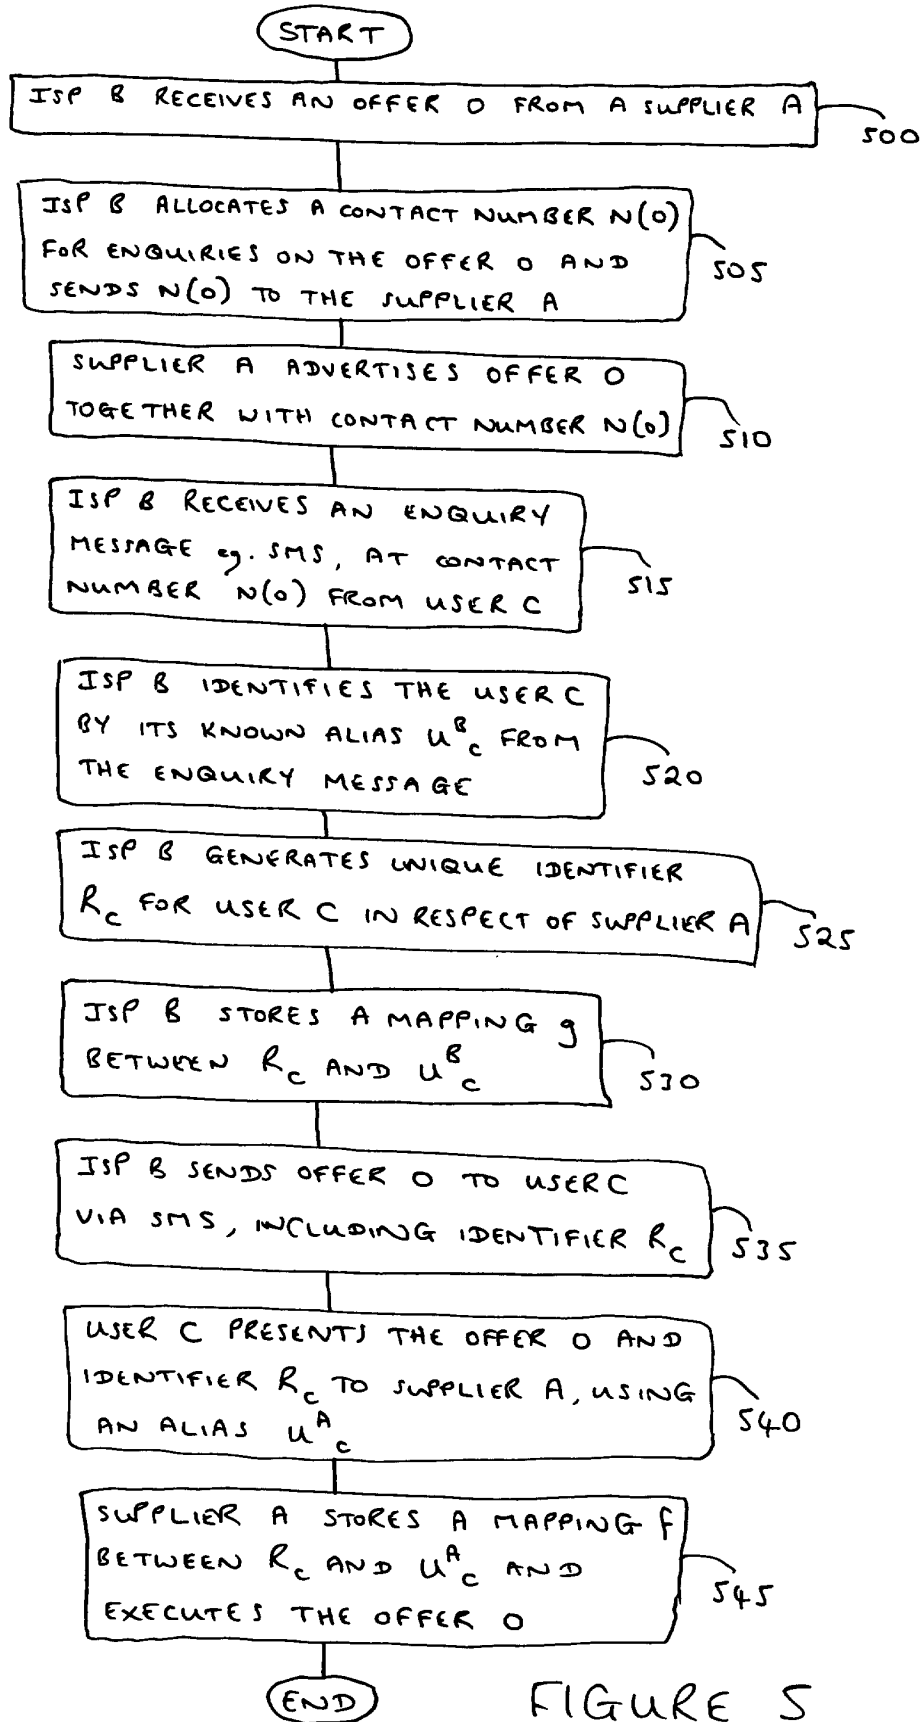 START
ISP B RECEIVES AN OFFER O FROM A SUPPLIER A
500
ISP B ALLOCATES A CONTACT NUMBER N(O)
FOR ENQUIRIES ON THE OFFER O AND
SENDS N(O) TO THE SUPPLIER A
505
SUPPLIER A ADVERTISES OFFER O
TOGETHER WITH CONTACT NUMBER N(O)
510
ISP B RECEIVES AN ENQUIRY
MESSAGE eg. SMS, AT CONTACT
NUMBER N(O) FROM USER C
515
ISP B IDENTIFIES THE USER C
BY ITS KNOWN ALIAS u^B_C FROM
THE ENQUIRY MESSAGE
520
ISP B GENERATES UNIQUE IDENTIFIER
R_C FOR USER C IN RESPECT OF SUPPLIER A
525
ISP B STORES A MAPPING g
BETWEEN R_C AND u^B_C
530
ISP B SENDS OFFER O TO USER C
VIA SMS, INCLUDING IDENTIFIER R_C
535
USER C PRESENTS THE OFFER O AND
IDENTIFIER R_C TO SUPPLIER A, USING
AN ALIAS u^A_C
540
SUPPLIER A STORES A MAPPING f
BETWEEN R_C AND u^A_C AND
EXECUTES THE OFFER O
545
END
FIGURE 5